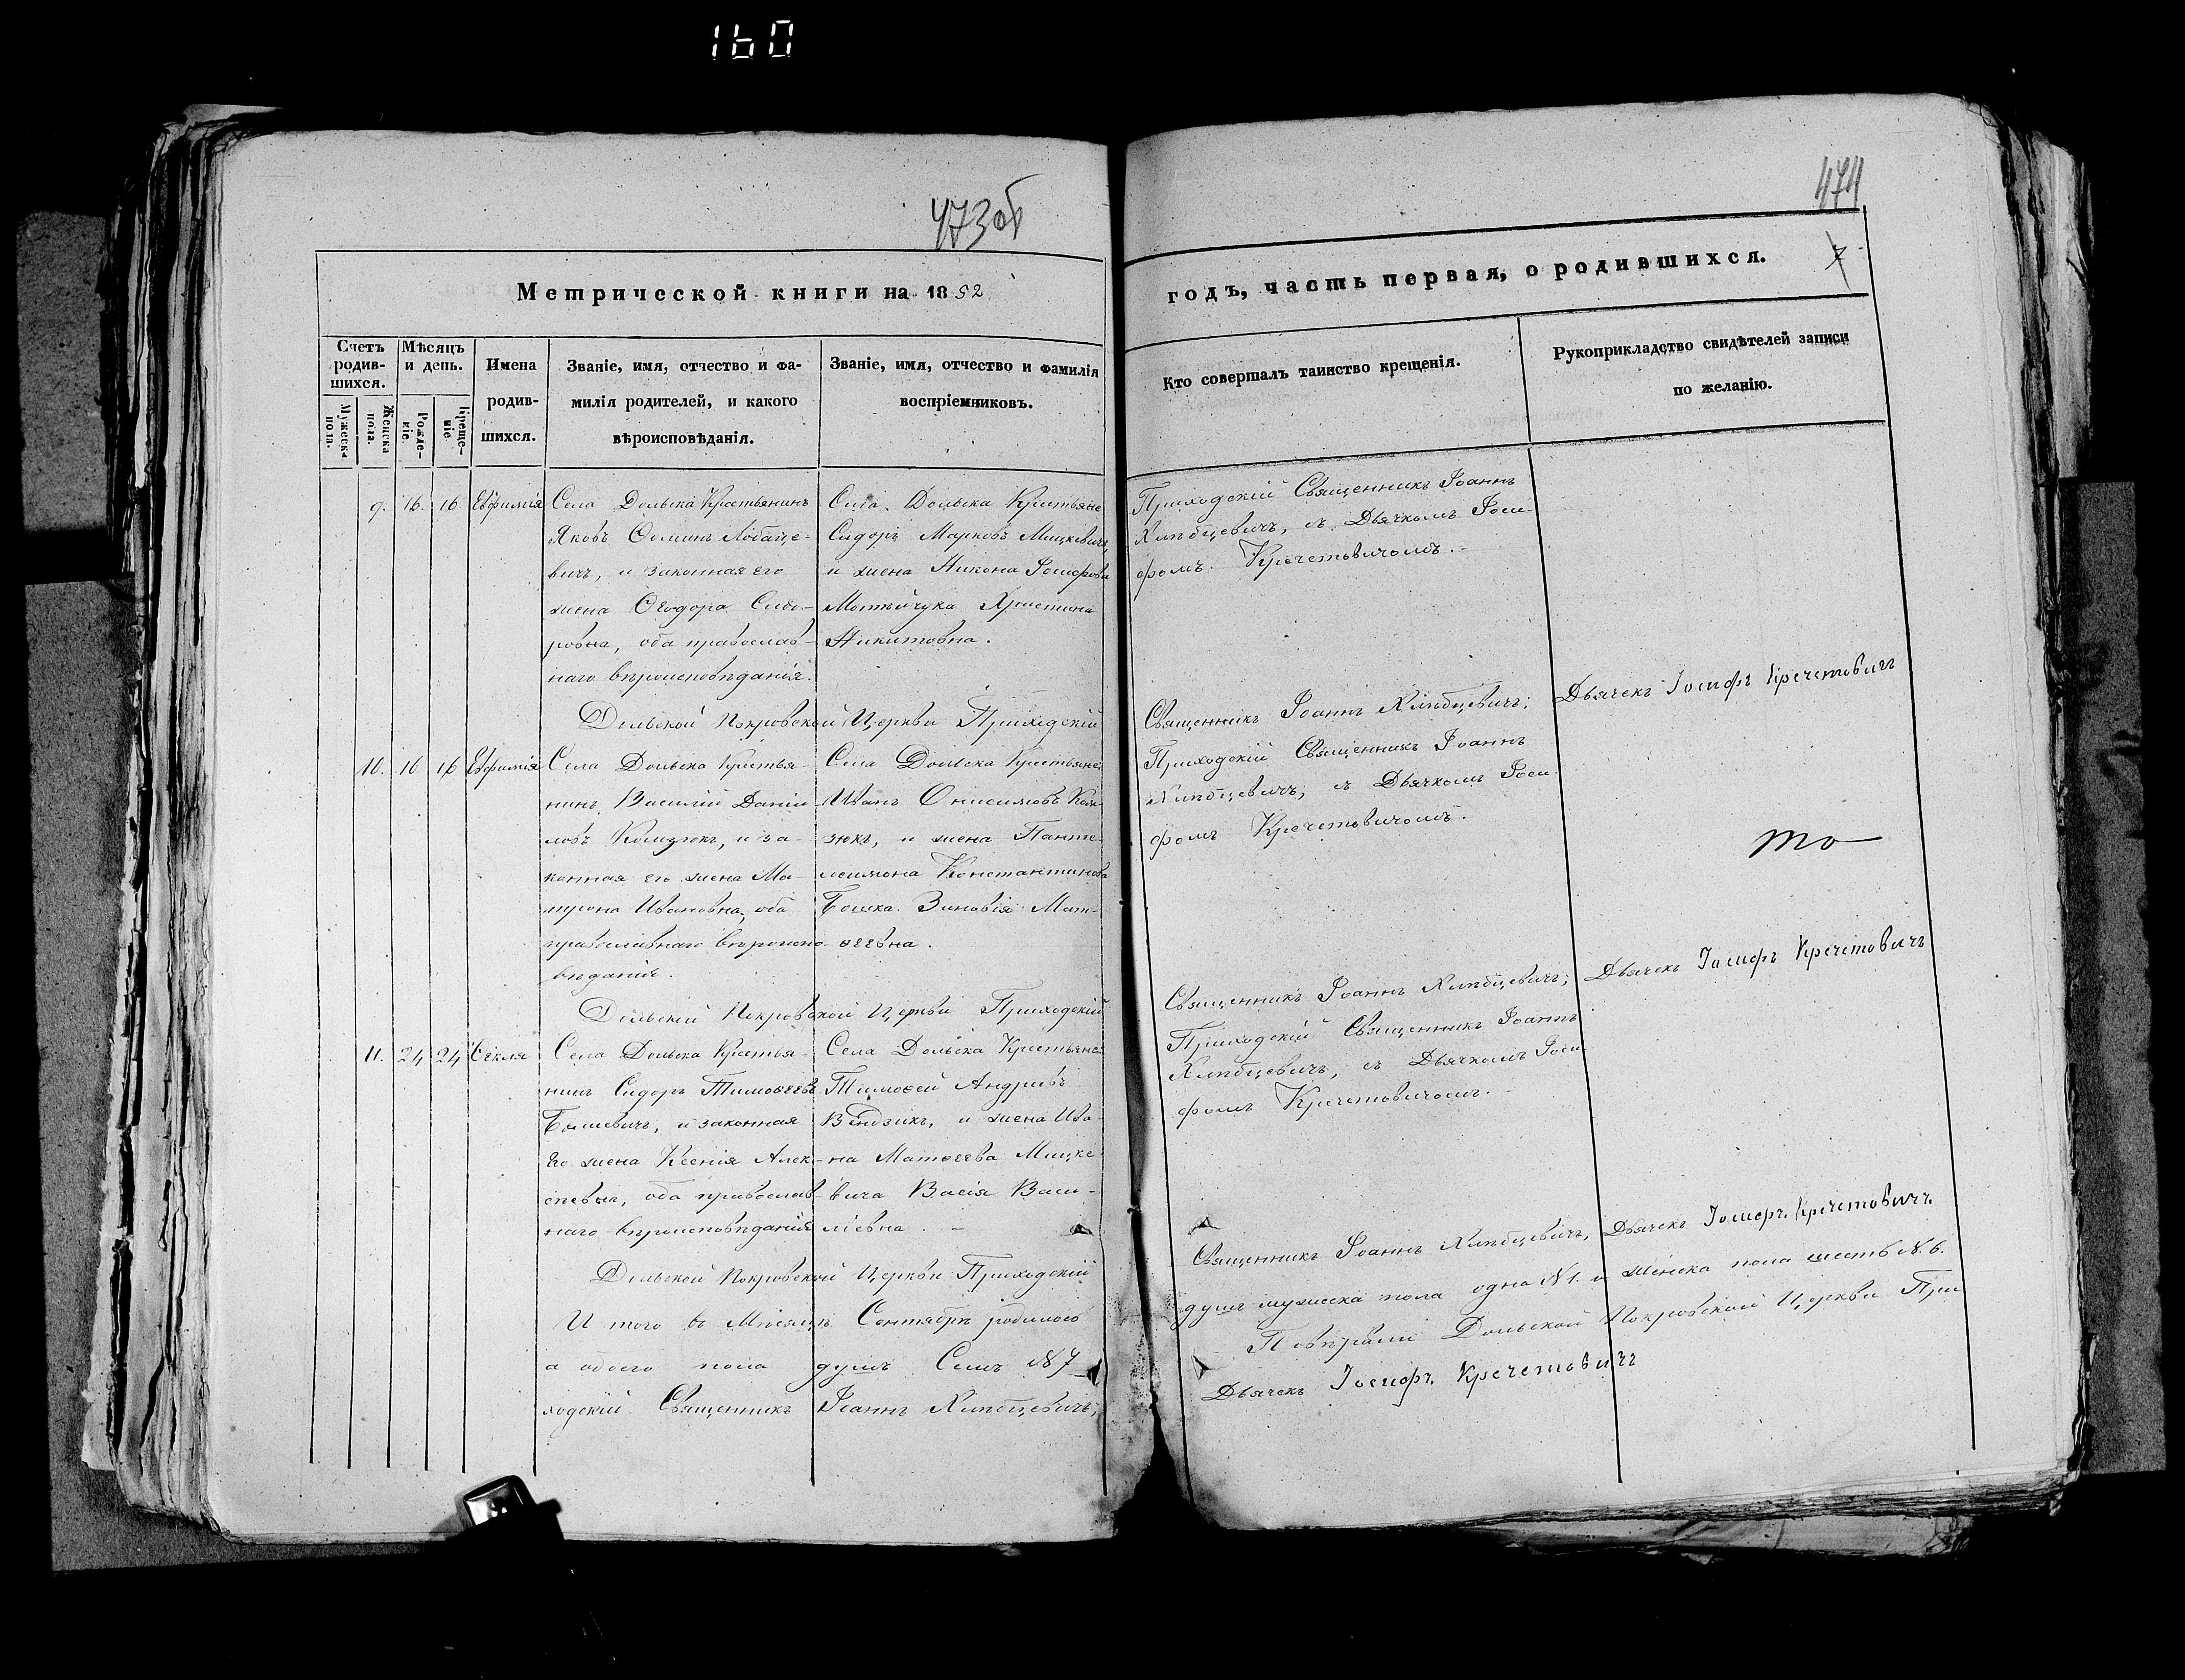 160
473 об
474
Метрической книги на 1852
годъ, часть первая, о родившихся.
7
Счетъ родив-шихся.
Мужеска пола.
Женска пола.
Мѣсяцъ и день.
Рожде-ніе.
Креще-ніе.
Имена родив-шихся.
Званіе, имя, отчество и фа-
милія родителей, и какого
вѣроисповѣданія.
Званіе, имя, отчество и фамилія
воспріемниковъ.
Кто совершалъ таинство крещенія.
Рукоприкладство свидѣтелей записи
по желанію.
9. 16. 16. Евфимія
Села Дольска Крестьянинъ
Яковъ Ѳоминъ Лобаце-
вичъ, и законная его
жена Ѳеодора Сидо-
ровна, оба православ-
наго вѣроисповѣданія.
Села Дольска Крестьяне
Сидоръ Марковъ Мицкевичъ,
и жена Никона Іосифова
Матѣйчука Христина
Никитовна.
Приходскій Священникъ Іоаннъ
Хлѣбцевичъ, съ Дьячкомъ Іоси-
фомъ Кречетовичомъ.
Дольской Покровской Церкви Приходскій
Священникъ Іоаннъ Хлѣбцевичъ;
Дьячекъ Іосифъ Кречетовичъ
10. 16 16 Евфимія
Села Дольска Крестья-
нинъ Василій Даніи-
ловъ Комзюкъ, и за-
конная его жена Ма-
трона Ивановна, оба
православнаго вѣроиспо-
вѣданія.
Села Дольска Крестьяне
Иванъ Онисимовъ Ком-
зюкъ, и жена Панте-
леимона Константинова
Бошка Зиновія Мат-
ѳеевна.
Приходскій Священникъ Іоаннъ
Хлѣбцевичъ, съ Дьячкомъ Іоси-
фомъ Кречетовичомъ.
Дольской Покровской Церкви Приходскій
Священникъ Іоаннъ Хлѣбцевичъ;
Дьячекъ Іосифъ Кречетовичъ
11. 24 24 Ѳекля
Села Дольска Крестья-
нинъ Сидоръ Тимоѳеевъ
законная
его жена Ксенія Алек-
сѣевна, оба православ-
наго вѣроисповѣданія
Села Дольска Крестьяне
Тимоѳей Андріевъ
Вендзикъ, и жена Ива-
на Матѳеева Мицке-
вича Васія Васи-
ліевна.
Приходскій Священникъ Іоаннъ
Хлѣбцевичъ, съ Дьячкомъ Іоси
фомъ Кречетовичомъ.
Дольской Покровской Церкви Приходскій
Священникъ Іоаннъ Хлѣбцевичъ,
Дьячекъ Іосифъ Кречетовичъ.
И того въ Мѣсяцѣ Сентябрѣ родилось
душъ мужеска пола одна №1. и женска пола шесть №6.
а обоего пола душъ Семь №7
Повѣряли Дольской Покровской Церкви При
ходскій Священникъ Іоаннъ Хлѣбцевичъ,
Дьячекъ Іосифъ Кречетовичъ